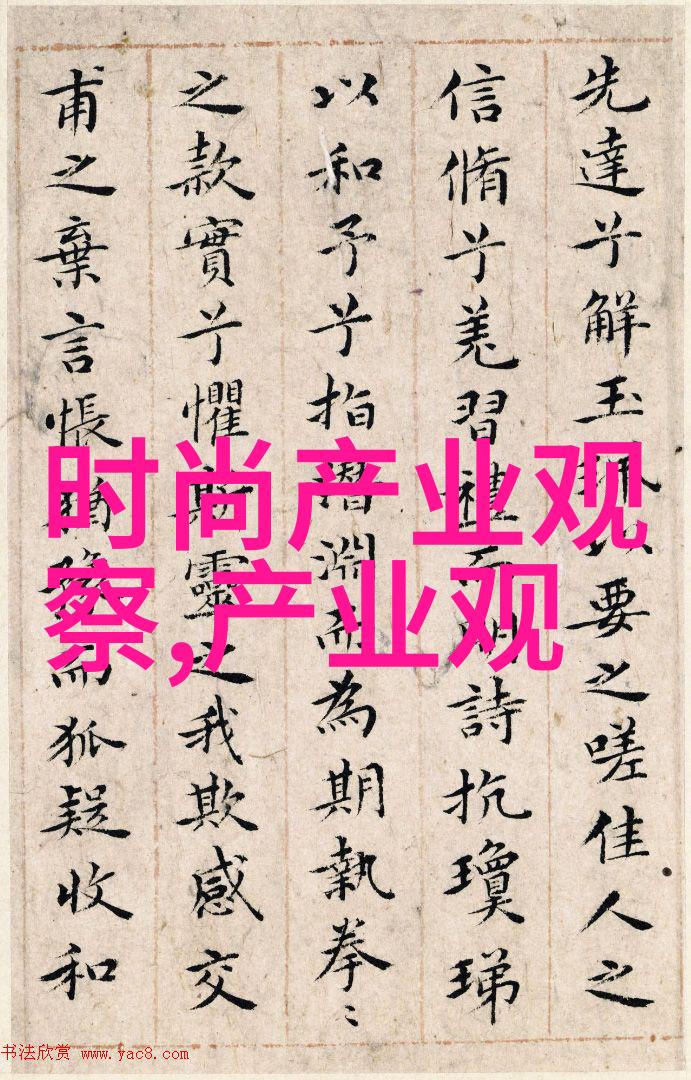 先達兮解玉珮以要之嗟佳人之
信脩兮羌習禮而明詩抗瓊珶
以和予兮指潛淵而為期執拳〻
之款實兮懼斯靈之我欺感交
甫之棄言悵猶豫而狐疑收和
时尚产业观
察,产业观
书法欣赏 www.yac8.com